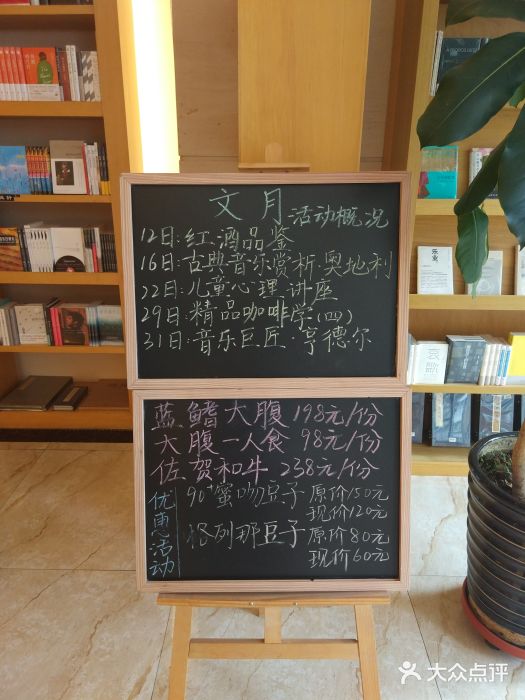 文月 活动概况
12日:红酒品鉴
16日:古典音乐赏析:奥地利
22日:儿童心理讲座
29日:精品咖啡学(四)
31日:音乐巨匠·亨德尔
蓝鳍大腹 198元/份
大腹一人食 98元/份
佐贺和牛 238元/份
优惠活动
90+蜜吻豆子 原价150元
现价120元
格列那豆子 原价80元
现价60元
大众点评